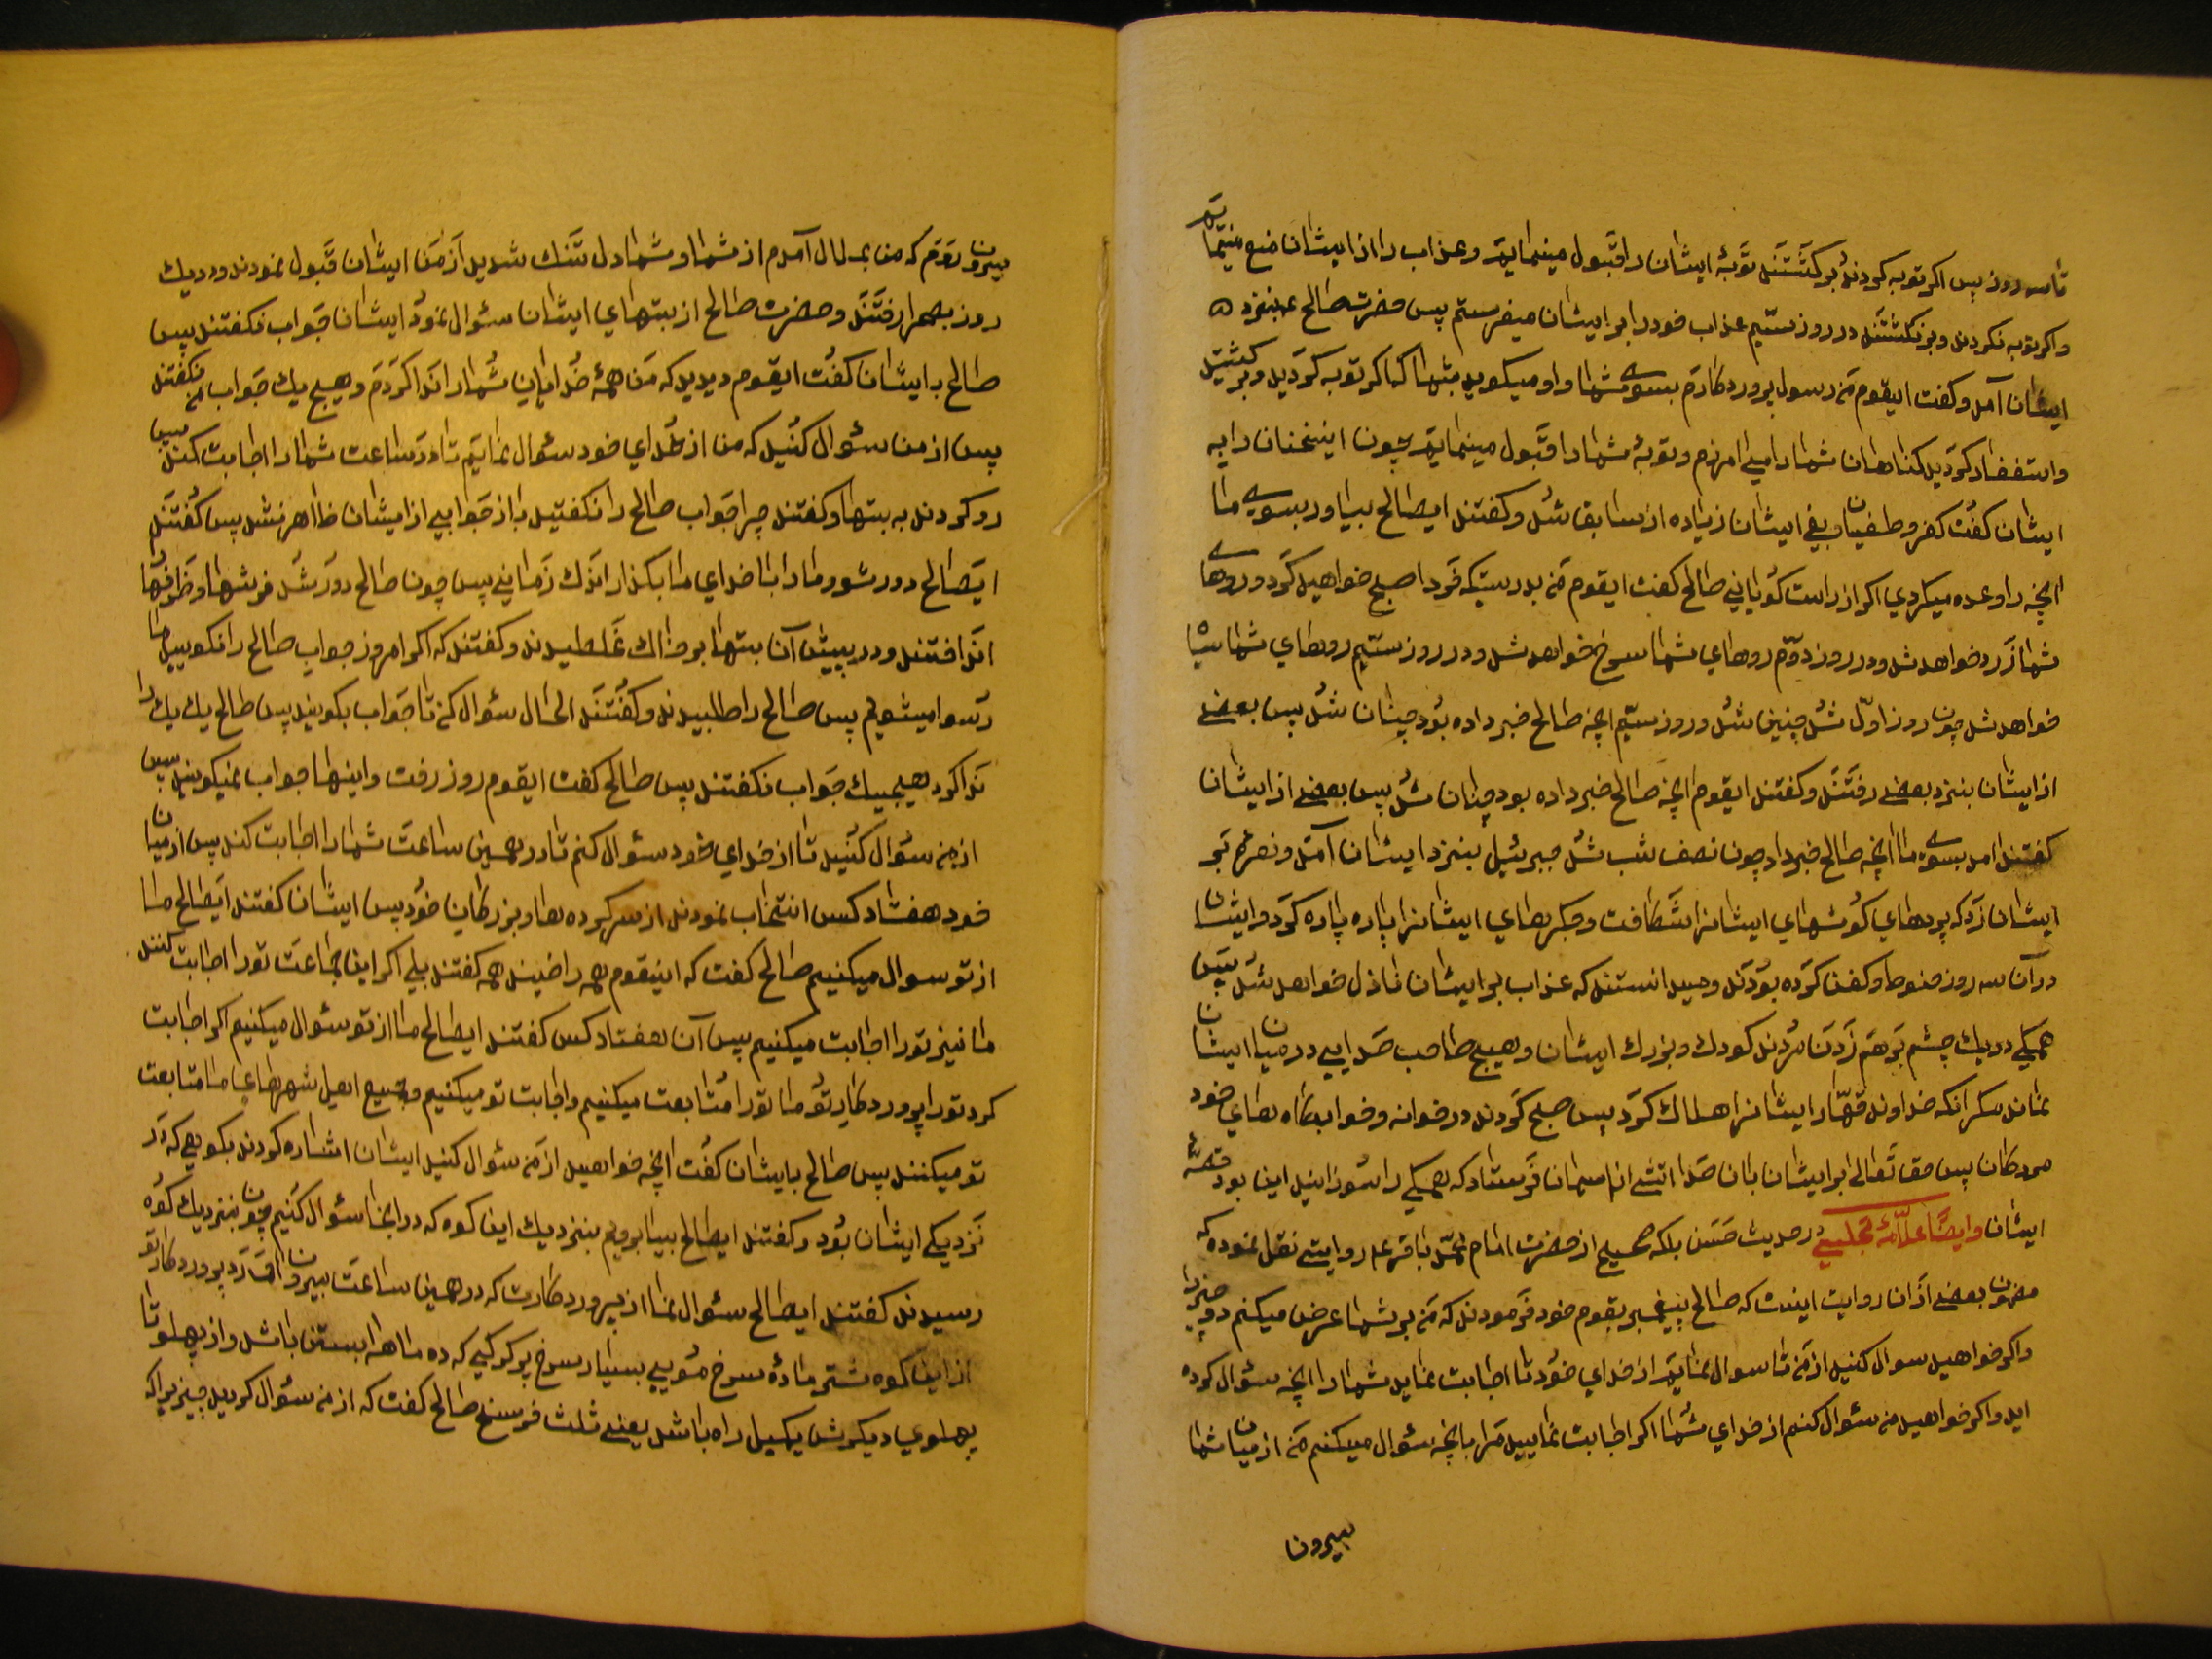 تا سه روز پس اکر توبه کردند و برکشتند توبۀ ایشان را قبول مینمایم و عذاب را از ایشان منع مینمایم
و اکر توبه نکردند و برنکشتند در روز سیّم عذاب خود را بر ایشان میفرستم پس حضرت صالح ع بنزد
ایشان آمد و کفت ایقوم من رسول پروردکارم بسوی شما و او میکوید بشما که اکر توبه کردید و برکشتید
و استغفار کردید کناهان شما را می آمرزم و توبۀ شما را قبول مینمایم چون اینسخنان را به
ایشان کفت کفر و طغیان و بغی ایشان زیاده از سابق شد و کفتند ایصالح بیاور بسوی ما
آنچه را وعده میکردی اکر از راست کویانی صالح کفت ایقوم من بدرستیکه فردا صبح خواهید کرد و روهای
شما زرد خواهد شد و در روز دوّم روهای شما سرخ خواهد شد و در روز سیّم روهای شما سیاه
خواهد شد چون روز اوّل شد چنین شد و روز سیّم آنچه صالح خبر داده بود چنان شد پس بعضی
از ایشان بنزد بعضی رفتند و کفتند ایقوم آنچه صالح خبر داده بود چنان شد پس بعضی از ایشان
کفتند آمد بسوی ما آنچه صالح خبر داد چون نصف شب شد جبرئیل بنزد ایشان آمد و نعرۀ بر
ایشان زد که پردهای کوشهای ایشانرا شکافت و جکرهای ایشانرا پاره پاره کرد و ایشان
در آن سه روز حنوط و کفن کرده بودند و میدانستند که عذاب بر ایشان نازل خواهد شد پس
همکی در یک چشم برهم زدن مردند کودک و بزرک ایشان و هیچ صاحب صدایی در میان ایشان
نماند مکر آنکه خداوند قهّار ایشانرا هلاک کرد پس صبح کردند در خوانه و خوابکاه های خود
مردکان پس حقتعالی بر ایشان بان صدا آتشی از آسمان فرستاد که همکی را سوزانید این بود قصّۀ
ایشان و ایضًا علّامۀ مجلسی در حدیث حسن بلکه صحیح از حضرت امام محمّد باقر ع م روایتی نقل نموده که
مضمون بعضی از آن روایت اینست که صالح پیغمبر بقوم خود فرمودند که من بر شما عرض میکنم دو چیز را
و اکر خواهید سوال کنید از من تا سوال نمایم از خدای خود تا اجابت نماید شما را آنچه سئوال کرده
اید و اکر خواهید من سئوال کنم از خدای شما اکر اجابت نمایید مرا بآنچه سئوال میکنم من از میان شما
بیرون
بیرون روم که من بملال آمدم از شما و شما دل تنک شدید از من ایشان قبول نمودند و در یک
روز بصحرا رفتند و حضرت صالح از بتهای ایشان سئوال نمود ایشان جواب نکفتند پس
صالح به ایشان کفت ایقوم دیدید که من همۀ خدایان شما را ندا کردم و هیچ یک جواب من نکفتند
پس از من سئوال کنید که من از خدای خود سئوال نمایم تا در ساعت شما را اجابت کند پس
رو کردند به بتها و کفتند چرا جواب صالح را نکفتید باز جوابی از ایشان ظاهر نشد پس کفتند
ایصالح دور شو و ما را با خدای ما بکذار اندک زمانی پس چون صالح دور شد فرشها و ظرفها
انداختند و در پیش آن بتها بر خاک غلطیدند و کفتند که اکر امروز جواب صالح را نکویید ما
رسوا میشویم پس صالح را طلبیدند و کفتند الحال سئوال کن تا جواب بکویند پس صالح یک یک را
ندا کرد هیچیک جواب نکفتند پس صالح کفت ایقوم روز رفت و اینها جواب نمیکویند پس
از من سئوال کنید تا از خدای خود سئوال کنم تا در همین ساعت شما را اجابت کند پس از میان
خود هفتاد کس انتخاب نمودند از سرکرده ها و بزرکان خود پس ایشان کفتند ایصالح ما
از تو سوال میکنیم صالح کفت که اینقوم همه راضیند همه کفتند بلی اکر این جماعت تو را اجابت کنند
ما نیز تو را اجابت میکنیم پس آن هفتاد کس کفتند ایصالح ما از تو سئوال میکنیم اکر اجابت
کرد تو را پروردکار تو ما تو را متابعت میکنیم و اجابت تو میکنیم و جمیع اهل شهرهای ما متابعت
تو میکنند پس صالح بایشان کفت آنچه خواهید از من سئوال کنید ایشان اشاره کردند بکوهی که در
نزدیکی ایشان بود و کفتند ایصالح بیا برویم بنزدیک این کوه که در آنجا سئوال کنیم چون بنزدیک کوه
رسیدند کفتند ایصالح سئوال نما از پروردکارت که در همین ساعت بیرون آورد پروردکار تو
از این کوه شتر مادۀ سرخ مویی بسیار سرخ پر کرکی که ده ماهه آبستن باشد و از پهلو تا
پهلوی دیکرش یکمیل راه باشد یعنی ثلث فرسخ صالح کفت که از من سئوال کردید چیزیرا که